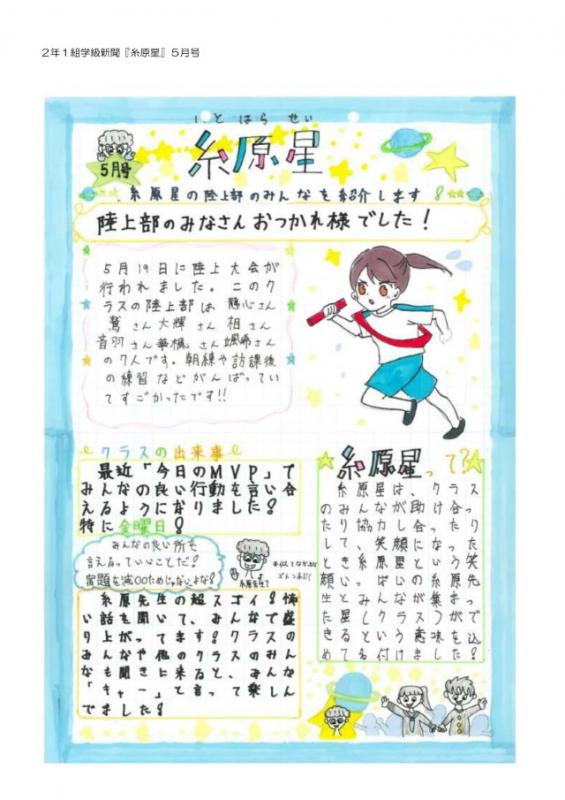 2年1組学級新聞『糸原星』5月号
いとはらせい
糸原星
5月号
糸原星の陸上部のみんなを紹介します!
陸上部のみなさんおつかれ様でした!
5月19日に陸上大会が
行われました。このク
ラスの陸上部は 心さん
さん大輝さん 相さん
音羽さん さん さん
の7人です。朝練や訪課後
の練習などがんばってい
てすごかったです!!
クラスの出来事
最近「今日のMVP」で
みんなの良い行動を言い合
えるようになりました!
特に金曜日!
みんなの良い所も
言えるっていいことだ!
宿題を減らすためじゃないよな?
糸原先生
糸原先生の超スゴイ!怖
い話を聞いて、みんなで盛
り上がってます!クラスの
みんなや他のクラスのみん
なも聞きに来ると、みんな
「キャー」と言って楽しん
でました!
糸原星って?
糸原星は、クラス
のみんなが助け合っ
たり協力し合ったり
して、笑顔になった
とき糸原星という笑
顔いっぱいの糸原先
生とみんなが集まっ
た星(クラス)がで
きるという意味を込
めて名付けました!